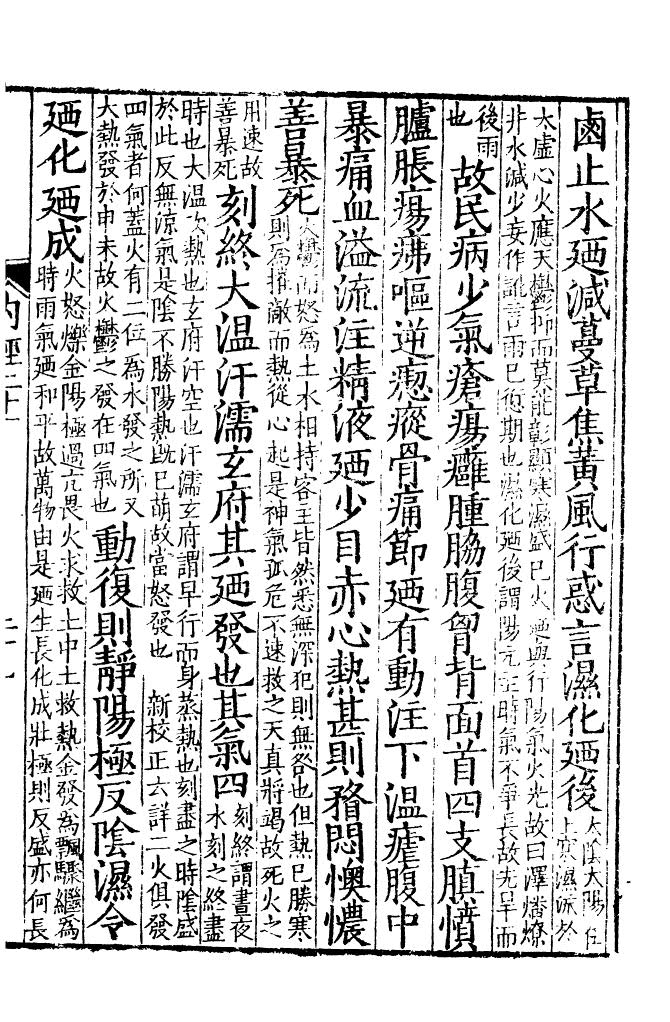 鹵止水廼減蔓草焦黃風行惑言濕化廼後
太陰太陽在
上寒濕流於
太虛心火應天鬱抑而莫能彰顯寒濕盛已火廼與行陽氣火光故曰澤燔燎
井水減少妄作訛言雨已愆期也濕化廼後謂陽亢主時氣不爭長故先旱而
後雨
也
故民病少氣瘡瘍癰腫脇腹胷背面首四支䐜憤
臚脹瘍疿嘔逆瘛瘲骨痛節廼有動注下溫瘧腹中
暴痛血溢流注精液廼少目赤心熱甚則瞀悶懊憹
善暴死
火鬱而怒為土水相持客主皆然悉無深犯則無咎也但熱已勝寒
則為摧敵而熱從心起是神氣孤危不速救之天真將竭故死火之
用速故
善暴死
刻終大溫汗濡玄府其廼發也其氣四
刻終謂晝夜
水刻之終盡
時也大溫次熱也玄府汗空也汗濡玄府謂早行而身蒸熱也刻盡之時陰盛
於此反無涼氣是陰不勝陽熱既已萌故當怒發也 新校正云詳二火俱發
四氣者何蓋火有二位為水發之所又
大熱發於申未故火鬱之發在四氣也
動復則靜陽極反陰濕令
廼化廼成
火怒爍金陽極過亢畏火求救土中土救熱金發為飄驟繼為
時雨氣廼和平故萬物由是廼生長化成壯極則反盛亦何長
内經二十